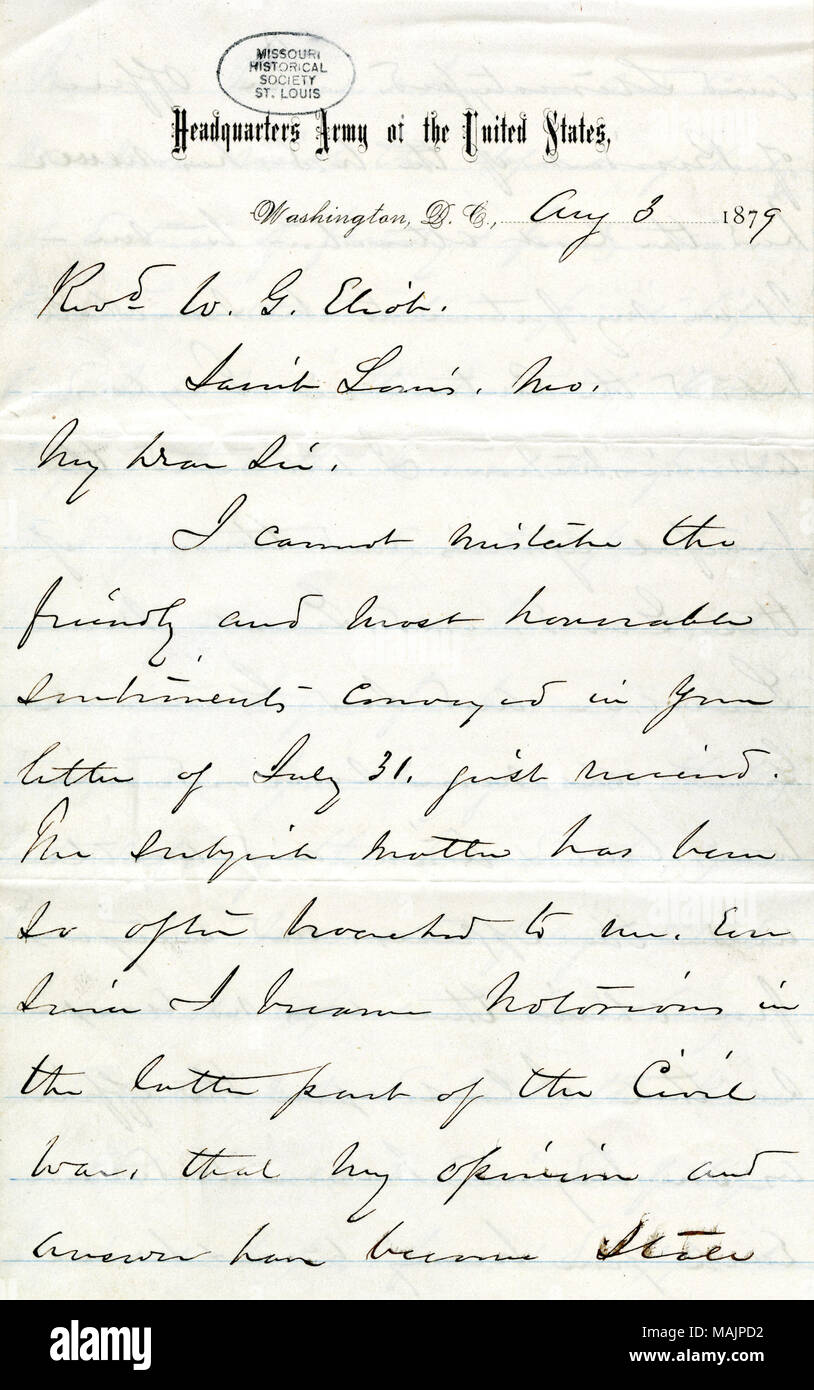 MISSOURI
HISTORICAL
SOCIETY
ST. LOUIS
Headquarters Army of the United States,
Washington, D. C., Aug 3 1879
Revd W. G. Eliot.
Saint Louis. Mo.
My dear Sir.
I cannot mistake the
friendly and most honorable
sentiments conveyed in your
letter of July 31. just received.
The subject matter has been
so often broached to me. Ever
since I became notorious in
the latter part of the Civil
War, that my opinion and
answer have become stale
alamy
Image ID: MAJPD2
www.alamy.com